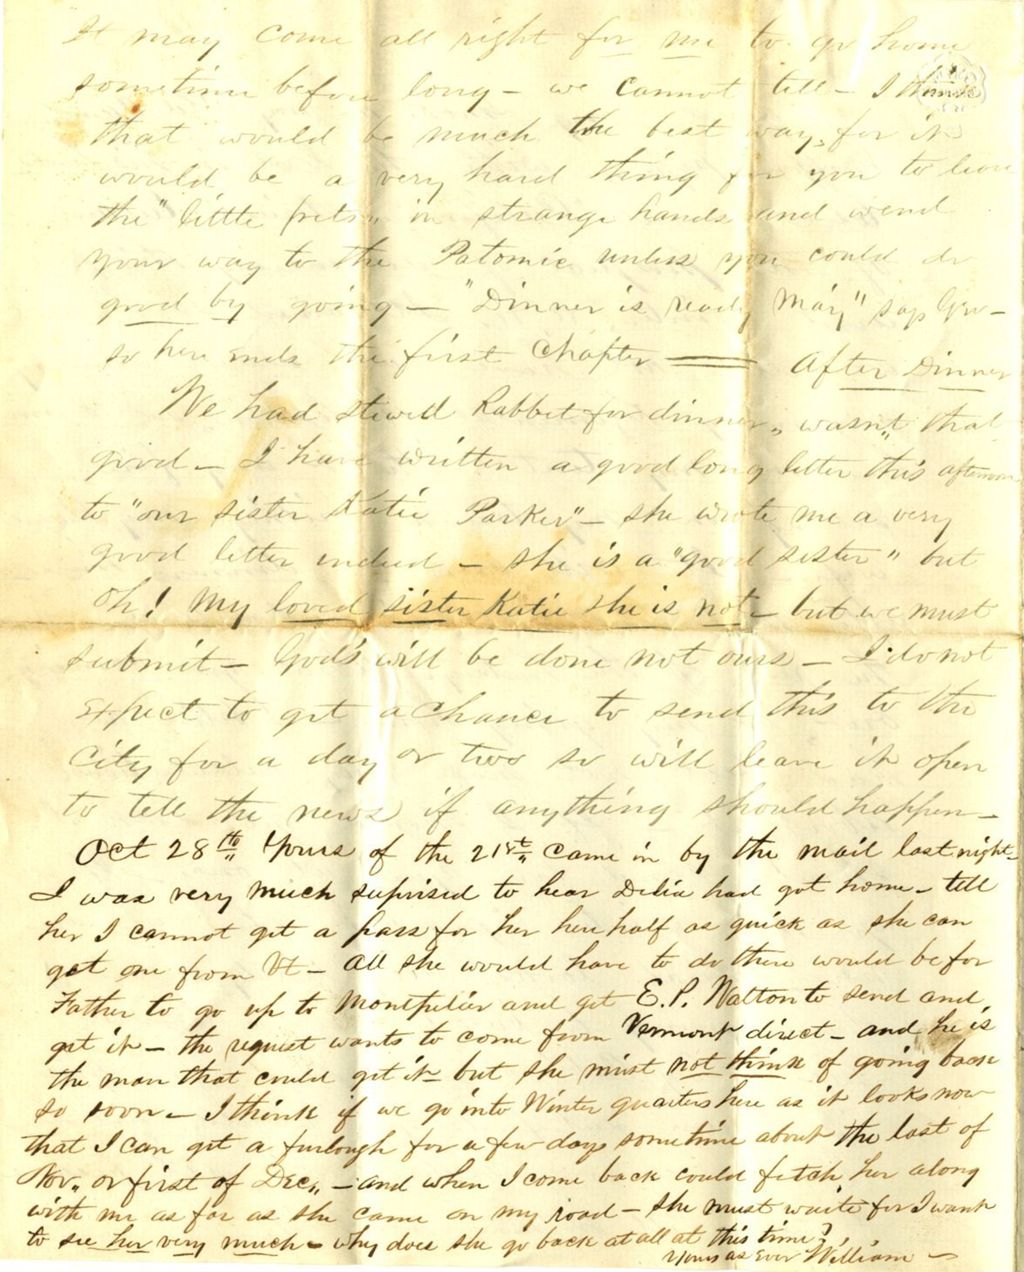 It may come all right for me to go home
sometime before long - we cannot tell - I think
that would be much the best way, for it
would be a very hard thing for you to leave
the "little pets" in strange hands and wend
your way to the Patomic unless you could do
good by going - "Dinner is ready Maj" says Geo -
so here ends the first Chapter After Dinner
We had stewed Rabbet for dinner, wasn't that
good - I have written a good long letter this afternoon
to "our sister Katie Parker" - she wrote me a very
good letter indeed - she is a "good sister" but
Oh! my loved sister Katie she is not - but we must
submit - God's will be done not ours - I do not
expect to get a chance to send this to the
City for a day or two so will leave it open
to tell the news if anything should happen -
Oct 28th Yours of the 21st came in by the mail last night -
I was very much suprised to hear Delia had got home - tell
her I cannot get a pass for her here half as quick as she can
get one from Vt - All she would have to do there would be for
Father to go up to Montpelier and get E.P. Walton to send and
get it - the request wants to come from Vermont direct - and he is
the man that could get it - but she must not think of going back
so soon - I think if we go into Winter quarters here as it looks now
that I can get a furlough for a few days sometime about the last of
Nov. or first of Dec. - and when I come back could fetch her along
with me as far as she came on my road - she must waite for I want
to see her very much - why does she go back at all at this time?
Yours as Ever William -